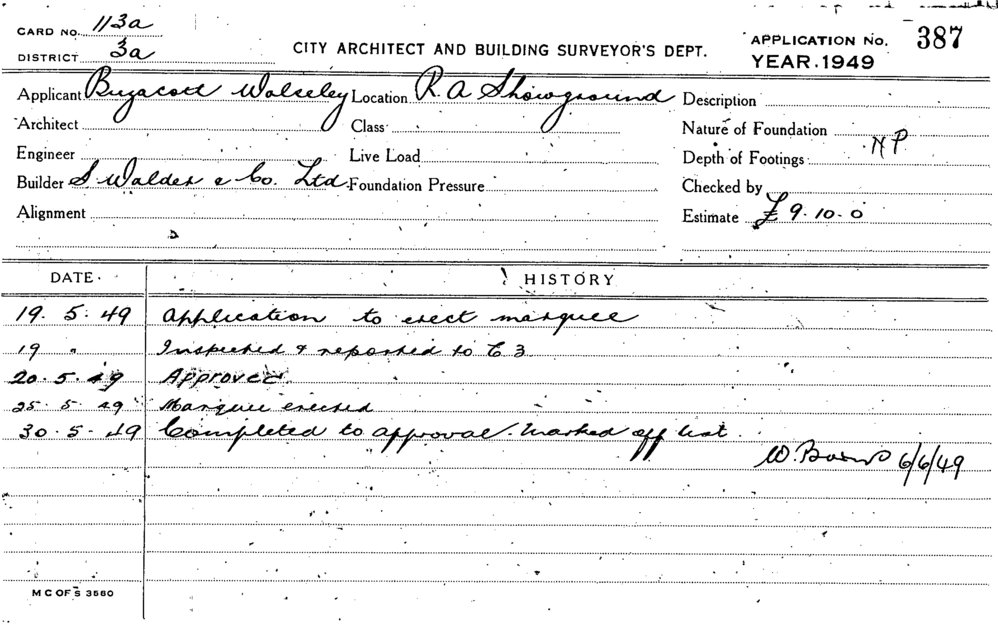 CARD NO. 113a
DISTRICT 3a
CITY ARCHITECT AND BUILDING SURVEYOR'S DEPT.
APPLICATION NO. 387
YEAR. 1949
Applicant Buzacott Wolseley Location R. A Showground Description
Architect Class Nature of Foundation
Engineer Live Load Depth of Footings N P
Builder S Walder & Co. Ltd. Foundation Pressure Checked by
Alignment Estimate £ 9. 10. 0
DATE HISTORY
19. 5. 49 Application to erect marquee
19 " Inspected & reported to C 3
20. 5. 49 Approved
25. 5. 49 Marquee erected
30. 5. 49 Completed to approval. Marked off list.
W. 6/6/49
M C OF S 3580